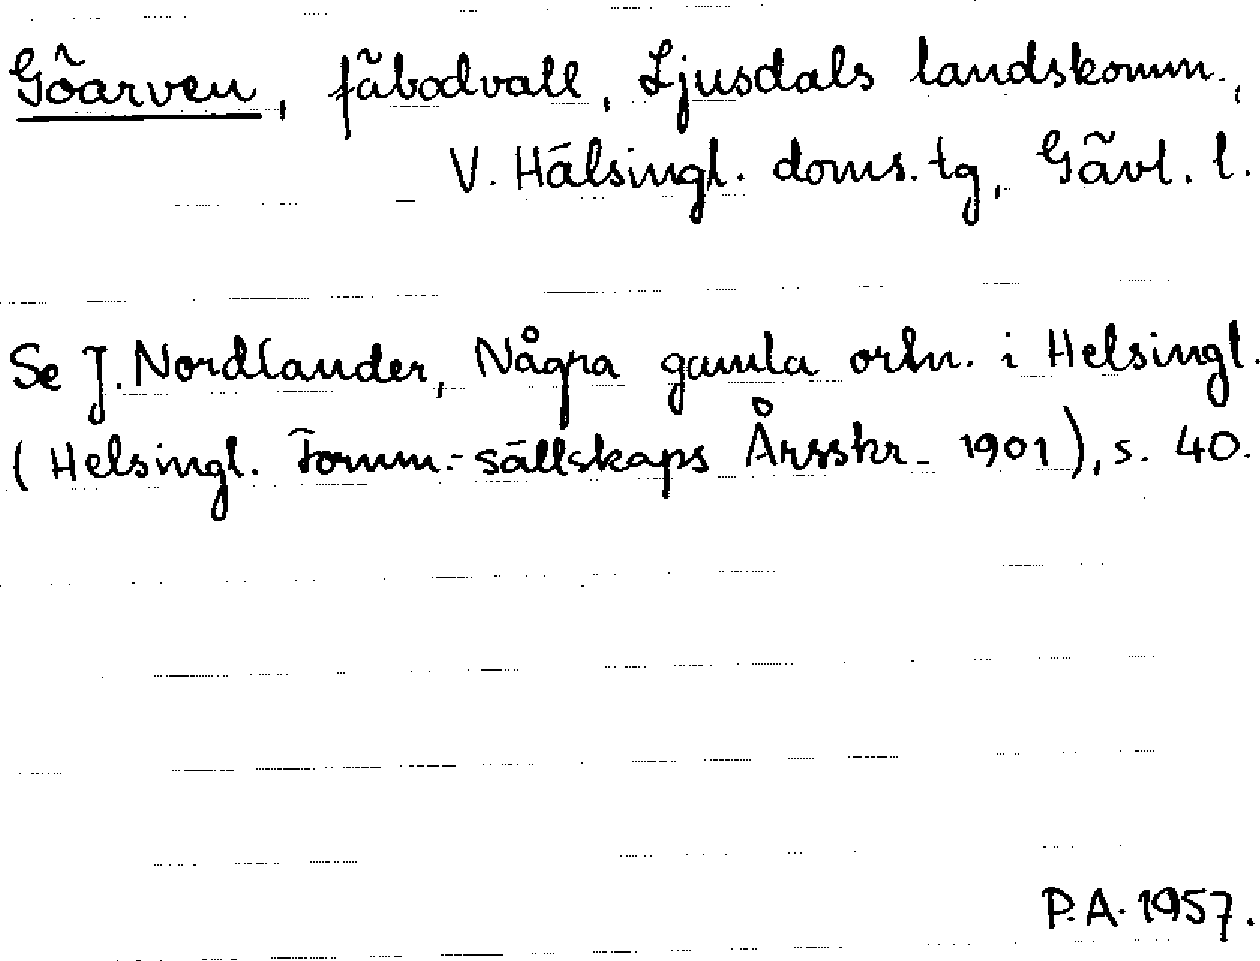 Göarven, fäbodvall, Ljusdals landskomm.,
V. Hälsingl. doms. tg, Gävl. l.
Se J. Nordlander, Några gamla ortn. i Helsingl.
(Helsingl. Fornm.-sällskaps Årsskr. 1901), s. 40.
P.A. 1957.